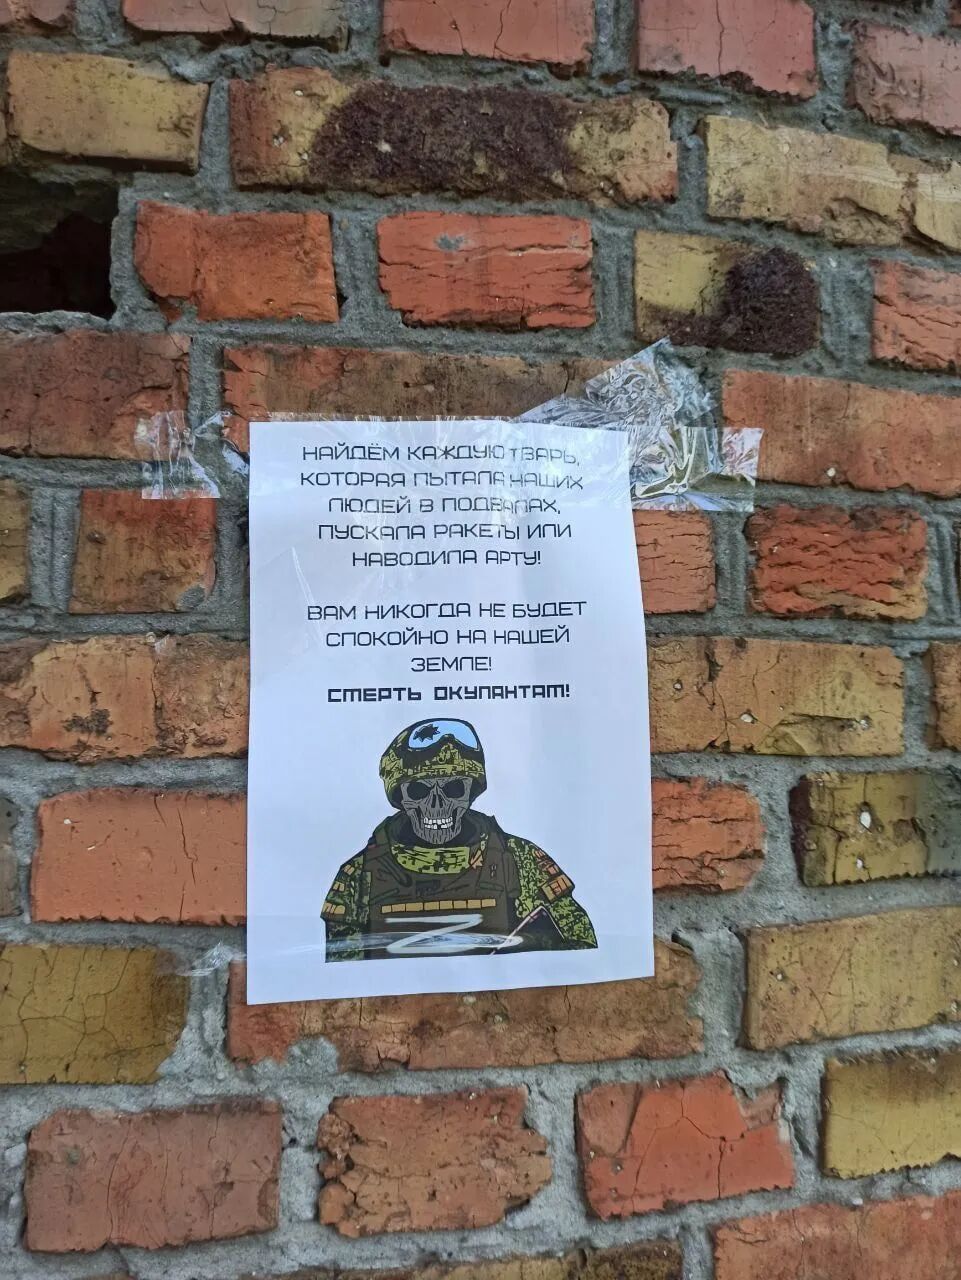 НАЙДЁМ КАЖДУЮ ТВАРЬ,
КОТОРАЯ ПЫТАЛА НАШИХ
ЛЮДЕЙ В ПОДВАЛАХ,
ПУСКАЛА РАКЕТЫ ИЛИ
НАВОДИЛА АРТУ!
ВАМ НИКОГДА НЕ БУДЕТ
СПОКОЙНО НА НАШЕЙ
ЗЕМЛЕ!
СМЕРТЬ ОКУПАНТАМ!
Z